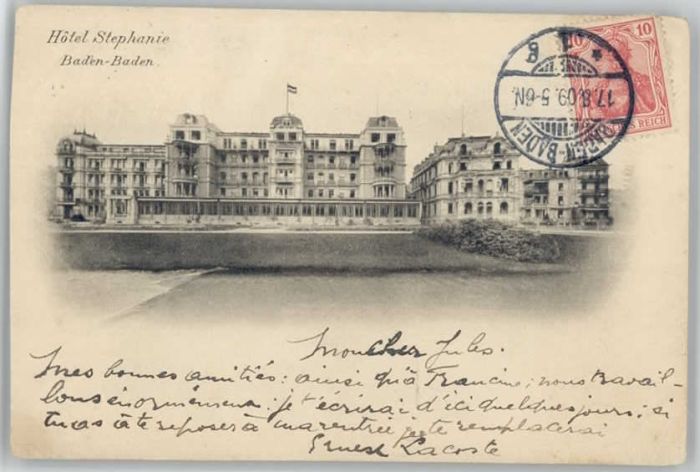 Hôtel Stephanie
Baden-Baden.
10 10
REICH
17.8.09.5-6N.
BADEN-BADEN
Mon cher Jules.
Mes bonnes amitiés: ainsi qu'à Francine; nous travail-
lons énormément: je t'écrirai d'ici quelques jours; si
tu as à te reposer à ma rentrée je te remplacerai
Ernest Lacoste